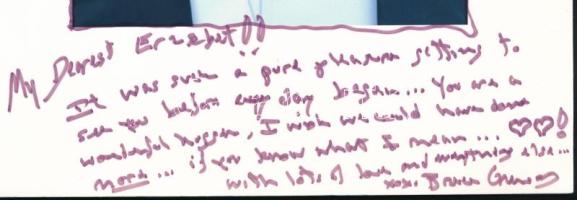 My Dearest Erzsebet!!
It was such a pure pleasure getting to
see you before every day began... You are a
wonderful person, I wish we could have done
more... if you know what I mean... ♡♡!
with lots of love and everything else...
xoxo